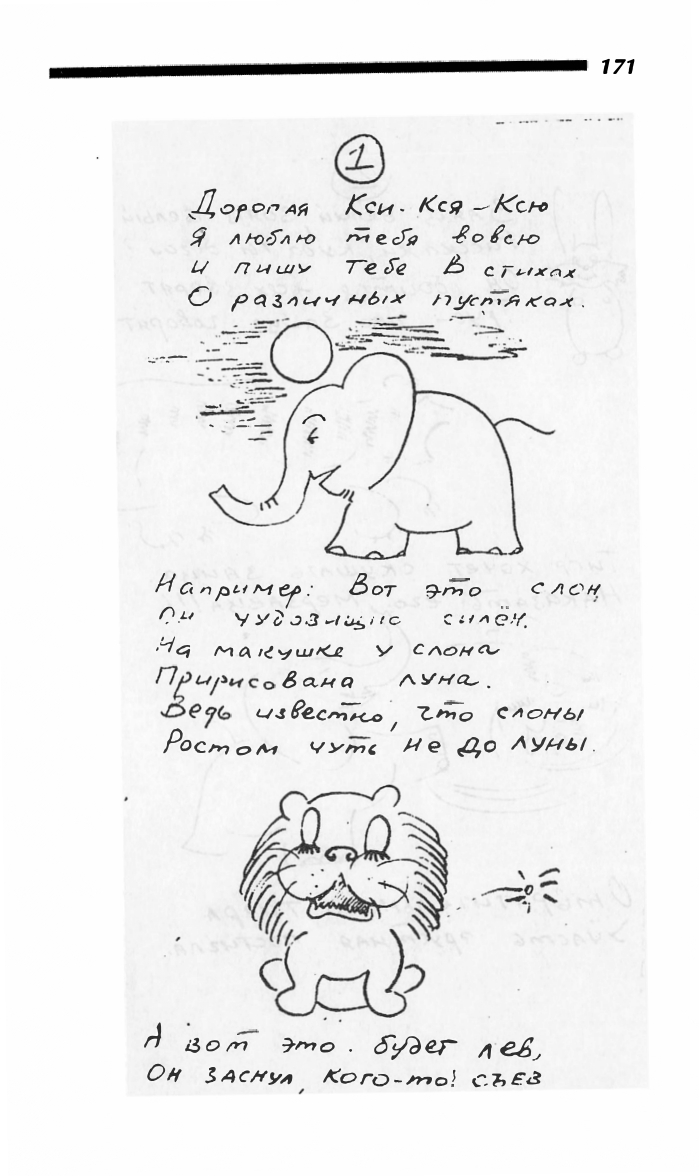 171
1
Дорогая Кси-Кся-Ксю
Я люблю тебя вовсю
И пишу тебе в стихах
О различных пустяках.
Например: Вот это слон,
Он чудовищно силён.
На макушке у слона
Пририсована луна.
Ведь известно, что слоны
Ростом чуть не до луны.
А вот это будет лев,
Он заснул, кого-то съев